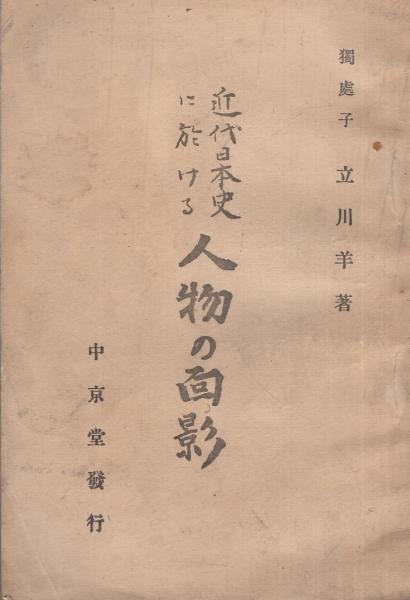 獨處子 立川羊著
近代日本史
に於ける
人物の面影
中京堂發行